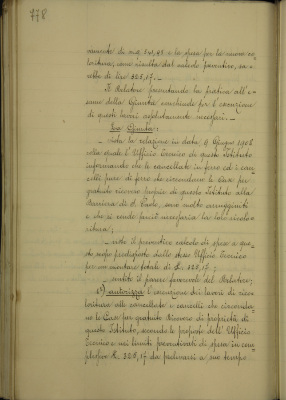 778
mente da mq. 341,43 e la spesa per la nuova co-
loritura, come risulta dal calcolo preventivo, sa-
rebbe di lire 328,17.-
Il Relatore presentando la pratica all'e-
same della Giunta conchiude per l'esecuzione
di questi lavori assolutamente necessari.-
La Giunta:
- vista la relazione in data 9 Giugno 1906
colla quale l'Ufficio Tecnico di questo Istituto
informando che le cancellate in ferro ed i can-
celli pure di ferro che circondano le case per
gratuito ricovero proprie di questo Istituto alla
Barriera di S. Paolo, sono molto arrugginiti
e che si rende quindi necessaria la loro colo-
ritura;
- visto il preventivo calcolo di spesa a que-
sto scopo predisposto dallo stesso Ufficio Tecnico
per un ammontare totale di L. 328,17;
- sentito il parere favorevole del Relatore;
autorizza l'esecuzione dei lavori di colo-
ritura alle cancellate e cancelli che circonda-
no le Case per gratuito Ricovero di proprietà di
questo Istituto, secondo le proposte dell'Ufficio
Tecnico e nei limiti preventivati di spesa in com-
plesso L. 328,17 da prelevarsi a suo tempo